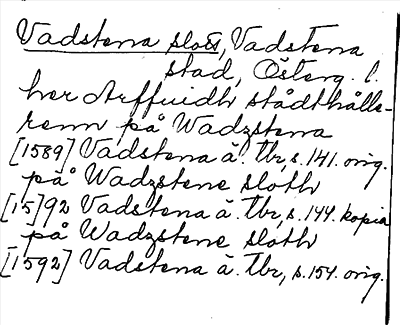 Vadstena slott, Vadstena
stad, Österg. l.
her Arffuidh stådthålle-
renn på Wadzstena
[1589] Vadstena ä. Tbr, s. 141. orig.
på Wadzstene sloth
[15]92 Vadstena ä. Tbr, s. 144. kopia
på Wadzstene sloth
[1592] Vadstena ä. Tbr, s. 154. orig.